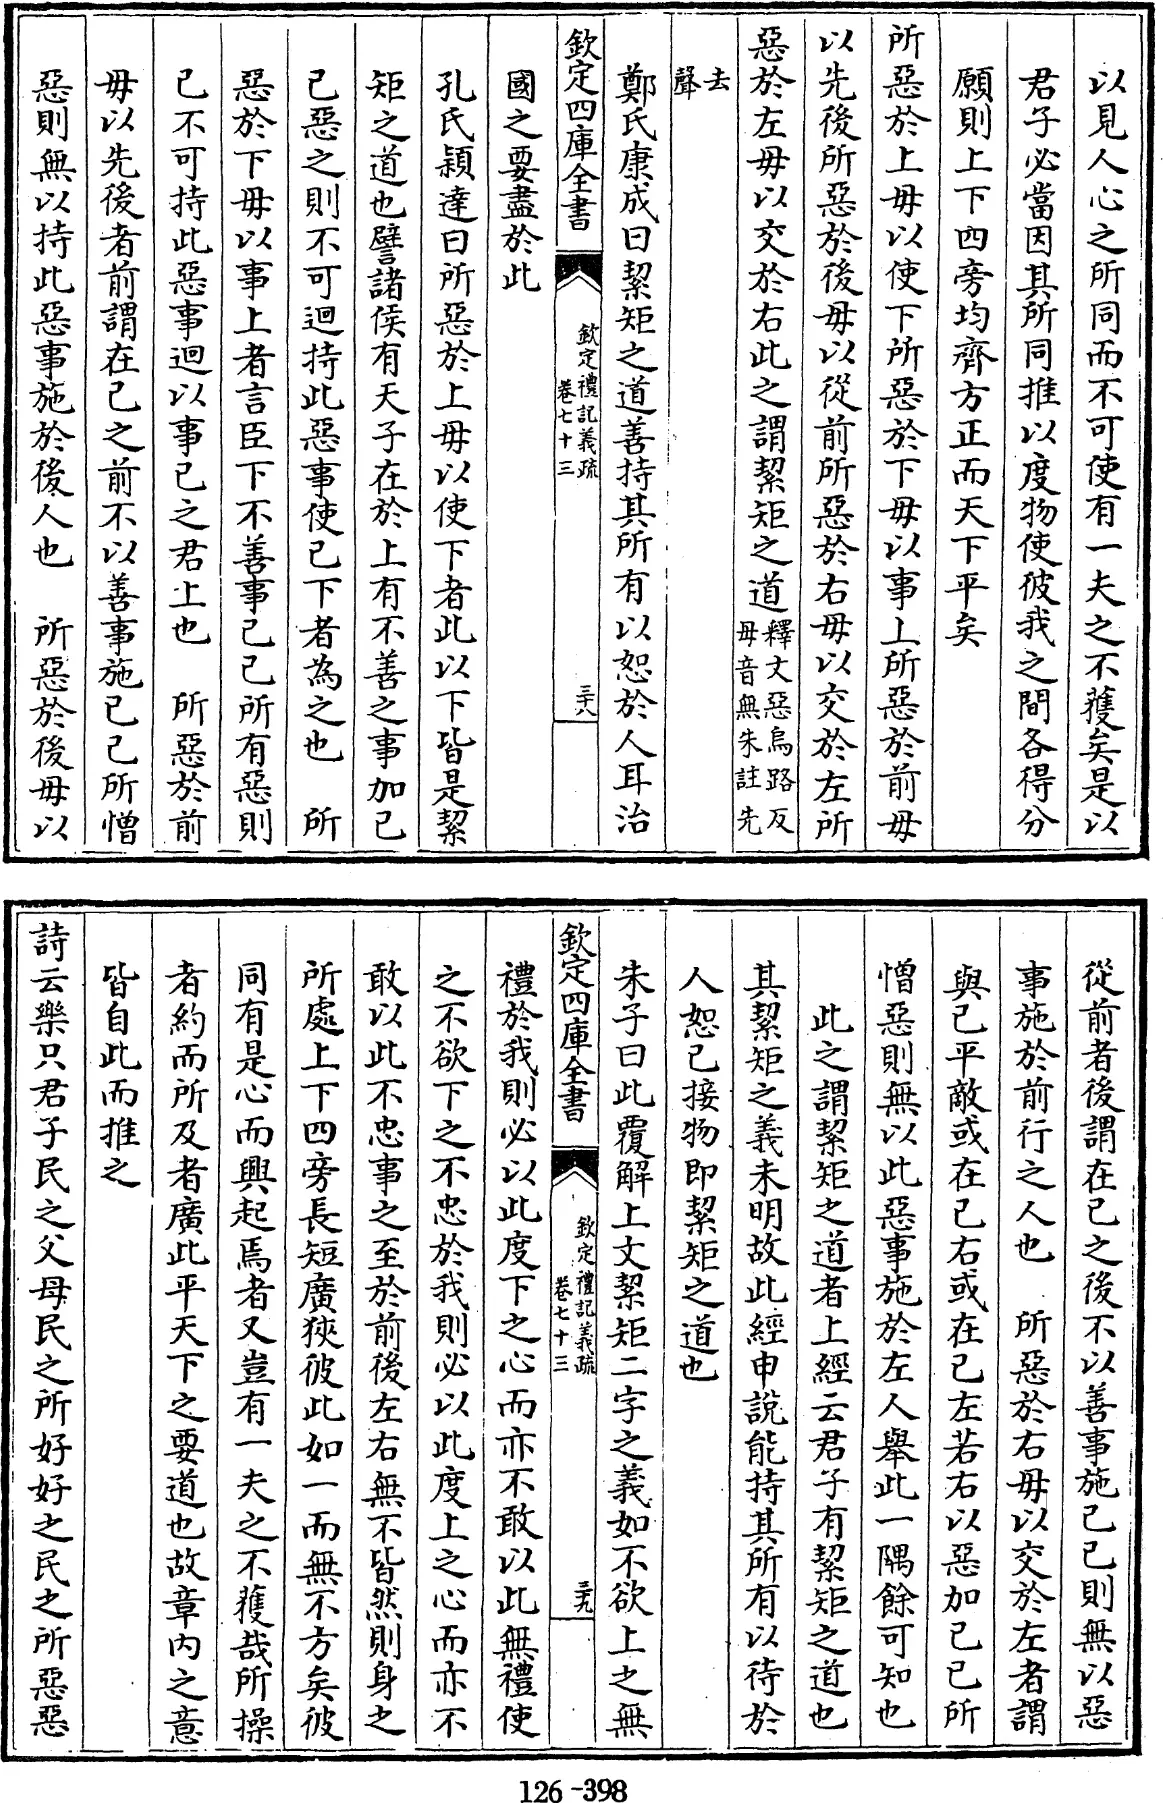 以見人心之所同而不可使有一夫之不獲矣是以
君子必當因其所同推以度物使彼我之間各得分
願則上下四旁均齊方正而天下平矣
所惡於上毋以使下所惡於下毋以事上所惡於前毋
以先後所惡於後毋以從前所惡於右毋以交於左所
惡於左毋以交於右此之謂絜矩之道釋文惡烏路反
毋音無朱註先
去
聲
鄭氏康成曰絜矩之道善持其所有以恕於人耳治
欽定四庫全書
欽定禮記義疏
卷七十三
三十八
國之要盡於此
孔氏穎達曰所惡於上毋以使下者此以下皆是絜
矩之道也譬諸侯有天子在於上有不善之事加己
己惡之則不可迴持此惡事使己下者為之也 所
惡於下毋以事上者言臣下不善事己己所有惡則
己不可持此惡事迴以事己之君上也 所惡於前
毋以先後者前謂在己之前不以善事施己己所憎
惡則無以持此惡事施於後人也 所惡於後毋以
從前者後謂在己之後不以善事施己己則無以惡
事施於前行之人也 所惡於右毋以交於左者謂
與己平敵或在己右或在己左若右以惡加己己所
憎惡則無以此惡事施於左人舉此一隅餘可知也
此之謂絜矩之道者上經云君子有絜矩之道也
其絜矩之義未明故此經申說能持其所有以待於
人恕己接物即絜矩之道也
朱子曰此覆解上文絜矩二字之義如不欲上之無
欽定四庫全書
欽定禮記義疏
卷七十三
三十九
禮於我則必以此度下之心而亦不敢以此無禮使
之不欲下之不忠於我則必以此度上之心而亦不
敢以此不忠事之至於前後左右無不皆然則身之
所處上下四旁長短廣狹彼此如一而無不方矣彼
同有是心而興起焉者又豈有一夫之不獲哉所操
者約而所及者廣此平天下之要道也故章內之意
皆自此而推之
詩云樂只君子民之父母民之所好好之民之所惡惡
126-398